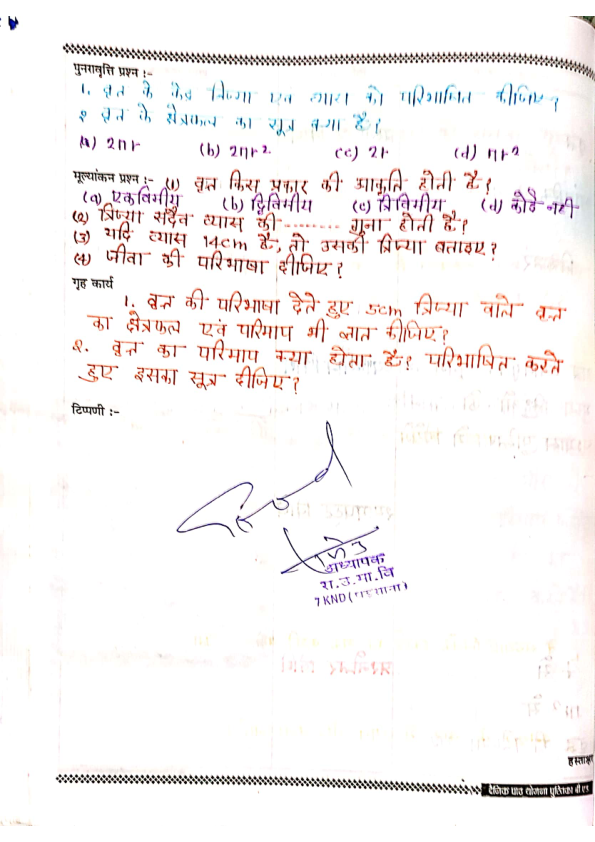 पुनरावृत्ति प्रश्न :-
1. वृत के केंद्र त्रिज्या एवं व्यास को परिभाषित कीजिए?
2 वृत के क्षेत्रफल का सूत्र क्या है।
(a) 2πr (b) 2πr². (c) 2r (d) πr²
मूल्यांकन प्रश्न :- (1) वृत किस प्रकार की आकृति होती है?
(a) एकविमीय (b) द्विविमीय (c) त्रिविमीय (d) कोई नही
(2) त्रिज्या सदैव व्यास की ........ गुना होती है?
(3) यदि व्यास 14cm है, तो उसकी त्रिज्या बताइए?
(4) जीवा की परिभाषा दीजिए?
गृह कार्य
1. वृत की परिभाषा देते हुए 5cm त्रिज्या वाले वृत
का क्षेत्रफल एवं परिमाप भी ज्ञात कीजिए?
2. वृत का परिमाप क्या होता है? परिभाषित करते
हुए इसका सूत्र दीजिए?
टिप्पणी :-
अध्यापक
रा.उ.मा.वि
7 KND
हस्ताक्षर
दैनिक पाठ योजना पुस्तिका बी एड